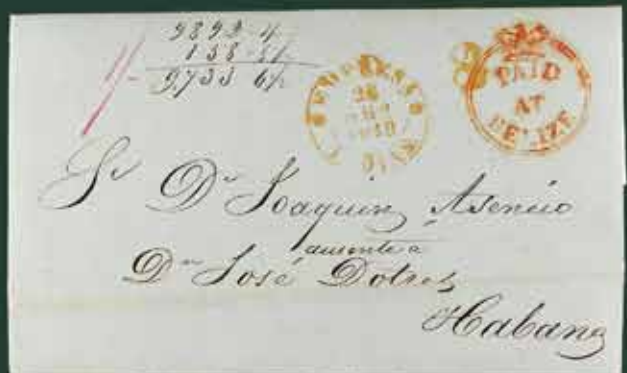 9892 4
138
9733 6½
1/-
PAID
AT
BELIZE
Sr Dn Joaquin Asencio
ausente a
Dn José Dotres
Habana